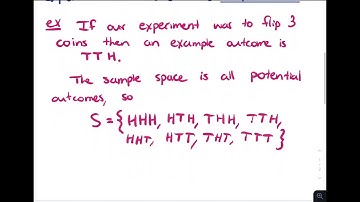 ex If our experiment was to flip 3
coins then an example outcome is
TTH.
The sample space is all potential
outcomes, so
S = {HHH, HTH, THH, TTH,
HHT, HTT, THT, TTT}